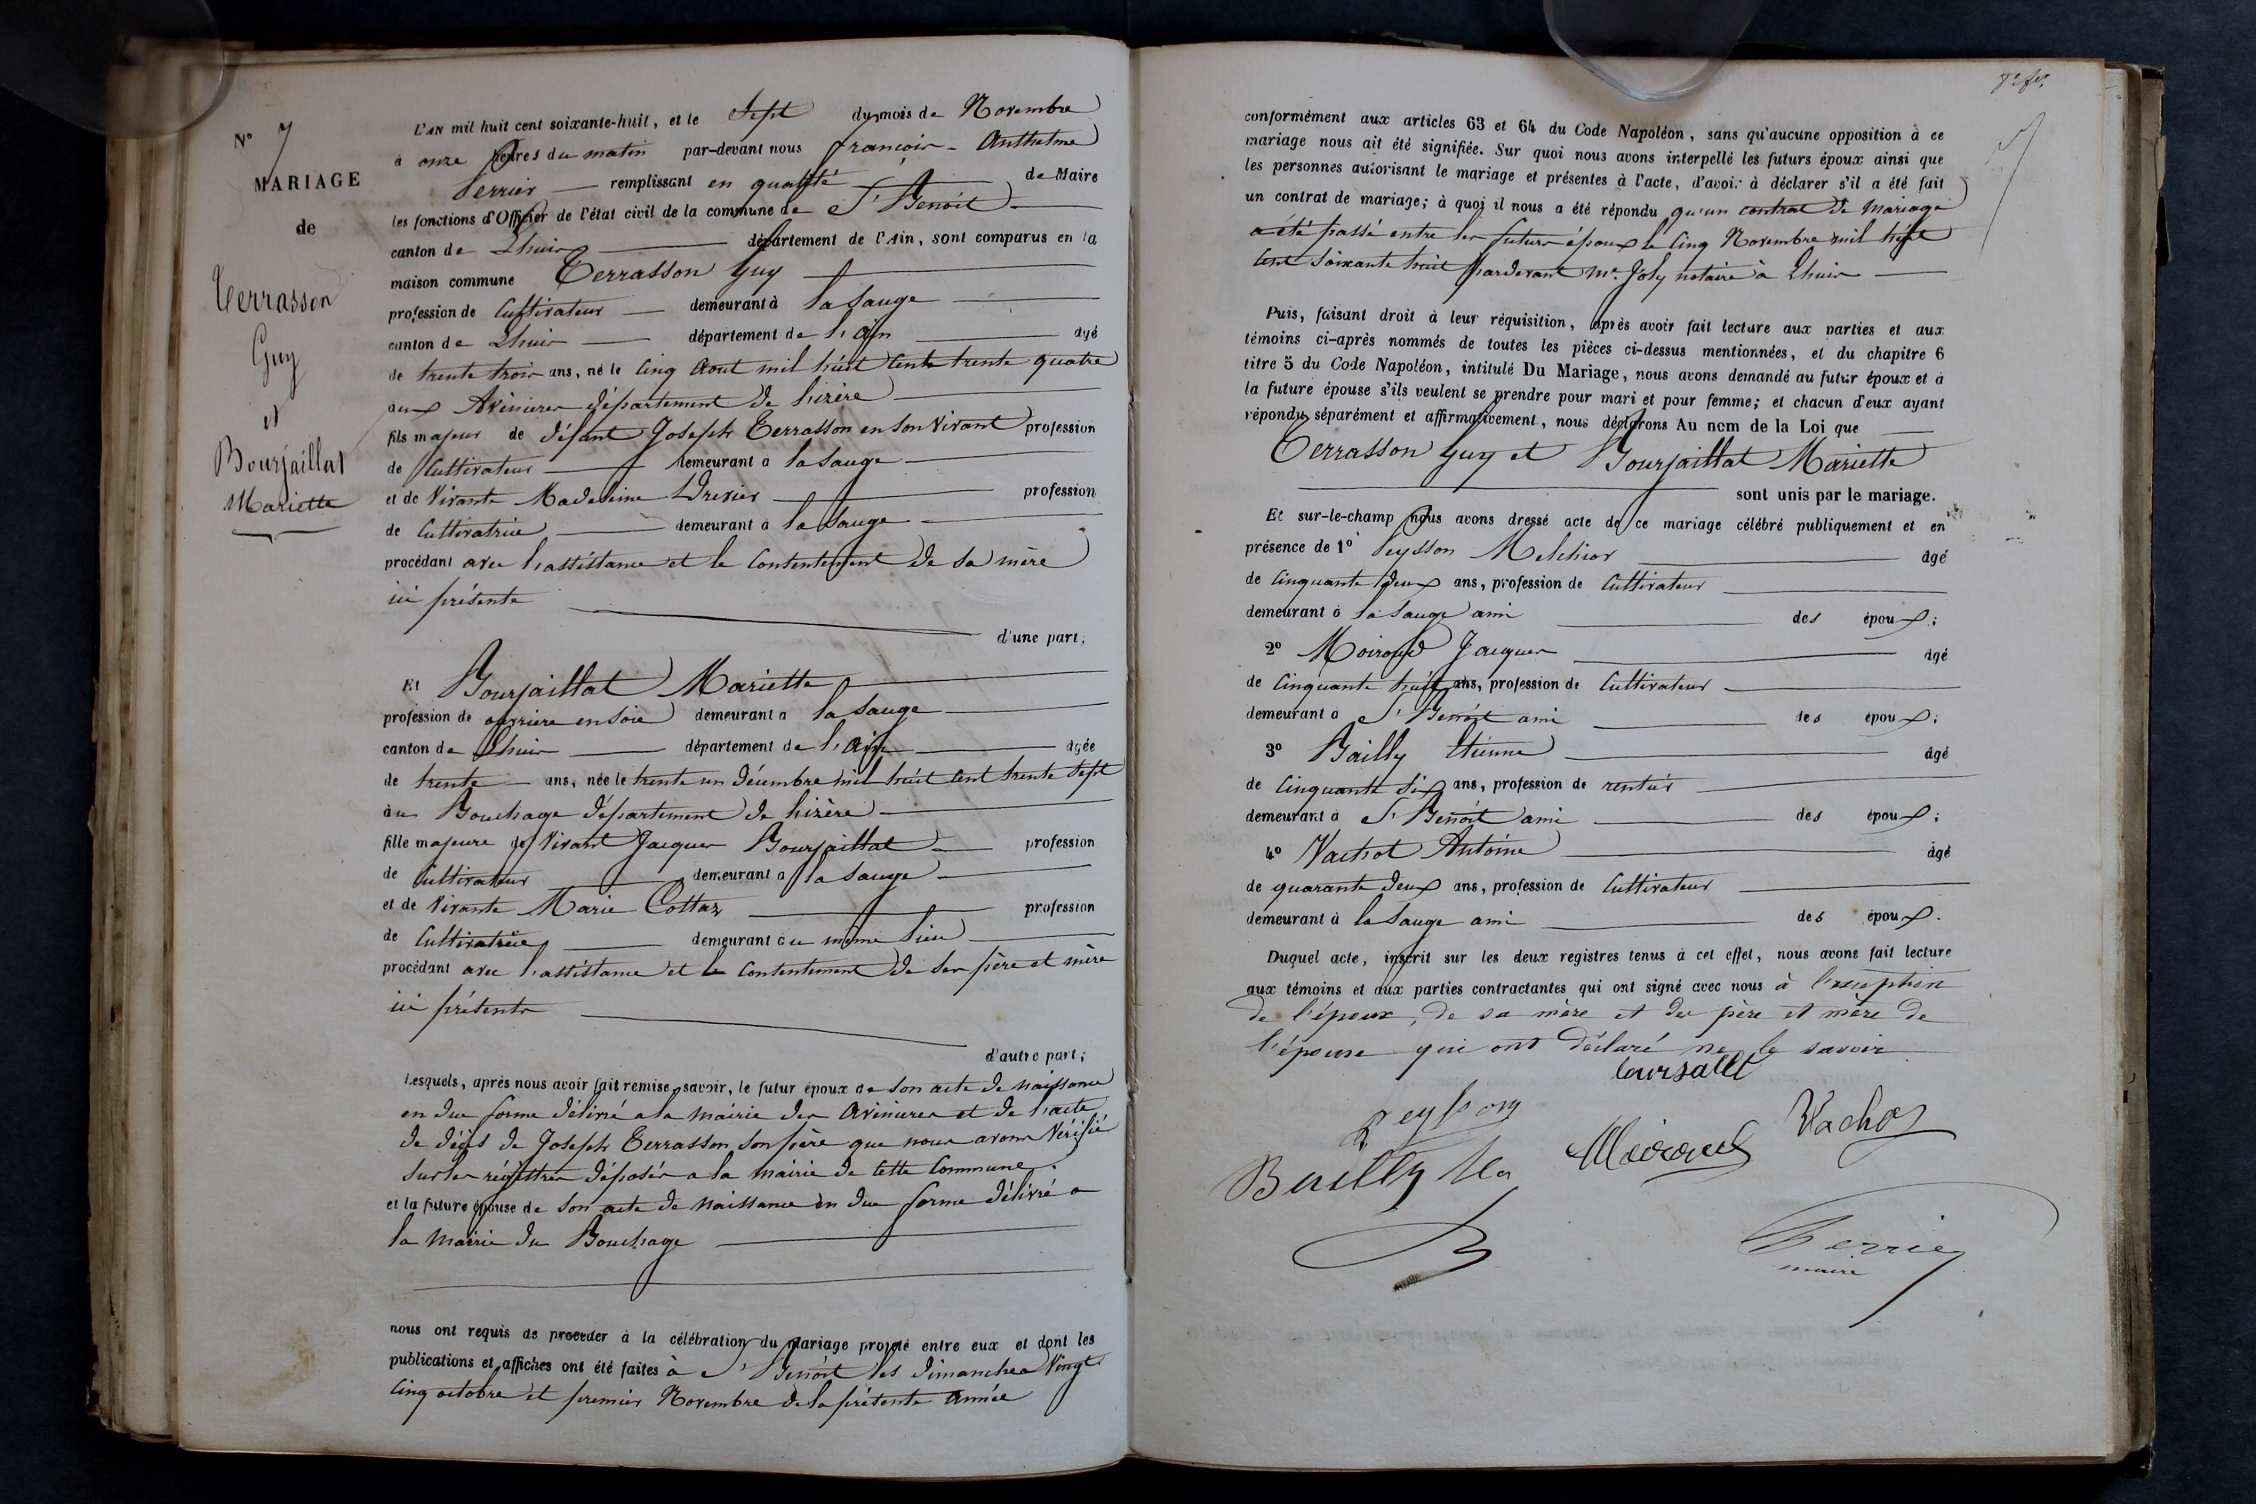 N° 7
MARIAGE
de
Terrasson
Guy
et
Bourjaillat
Mariette
L'AN mil huit cent soixante-huit, et le Sept du mois de Novembre
à onze heures du matin par-devant nous françois - Anthelme
Perrier remplissant en qualité de Maire
les fonctions d'Officier de l'état civil de la commune de St Benoit
canton de Lhuis département de l'Ain, sont comparus en la
maison commune Terrasson Guy
profession de Cultivateur demeurant à la Sauge
canton de Lhuis département de l'ain âgé
de trente trois ans, né le Cinq Aout mil huit Cent trente quatre
aux Avenieres département de l'isère
fils majeur de défunt Joseph Terrasson en son vivant profession
de Cultivateur demeurant à la Sauge
et de Vivante Madeleine Drevier profession
de Cultivatrice demeurant à la Sauge
procédant avec l'assistance et le Consentement de sa mère
ici présente
d'une part.
Et Bourjaillat Mariette
profession de ouvriere en soie demeurant à la Sauge
canton de Lhuis département de l'Ain âgée
de trente ans, née le trente un décembre mil huit cent trente Sept
au Bouchage département de l'isère
fille majeure de Vivant Jacques Bourjaillat profession
de Cultivateur demeurant à la Sauge
et de Vivante Marie Cottaz profession
de Cultivatrice demeurant au même lieu
procédant avec l'assistance et le Consentement de ses père et mère
ici présents
d'autre part;
Lesquels, après nous avoir fait remise, savoir, le futur époux de son acte de naissance
en due forme délivré a la mairie des Avenieres et de l'acte
de décès de Joseph Terrasson son père que nous avons Vérifié
sur les régistres déposés a la mairie de Cette Commune.
et la future épouse de son acte de naissance en due forme délivré a
la Mairie du Bouchage
nous ont requis de procéder à la célébration du mariage projeté entre eux et dont les
publications et affiches ont été faites à St Benoit les dimanches Vingt
Cinq octobre et premier Novembre de la présente année
conformément aux articles 63 et 64 du Code Napoléon, sans qu'aucune opposition à ce
mariage nous ait été signifiée. Sur quoi nous avons interpellé les futurs époux ainsi que
les personnes autorisant le mariage et présentes à l'acte, d'avoir à déclarer s'il a été fait
un contrat de mariage; à quoi il nous a été répondu qu'un contrat de mariage
a été passé entre les futurs époux le Cinq Novembre mil huit
Cent Soixante huit pardevant Me Joly notaire à Lhuis
Puis, faisant droit à leur réquisition, après avoir fait lecture aux parties et aux
témoins ci-après nommés de toutes les pièces ci-dessus mentionnées, et du chapitre 6
titre 5 du Code Napoléon, intitulé Du Mariage, nous avons demandé au futur époux et à
la future épouse s'ils veulent se prendre pour mari et pour femme; et chacun d'eux ayant
répondu séparément et affirmativement, nous déclarons Au nom de la Loi que
Terrasson Guy et Bourjaillat Mariette
sont unis par le mariage.
Et sur-le-champ nous avons dressé acte de ce mariage célébré publiquement et en
présence de 1° Peysson Melchior âgé
de Cinquante deux ans, profession de Cultivateur
demeurant à la Sauge ami des époux;
2° Moiroud Jacques âgé
de Cinquante huit ans, profession de Cultivateur
demeurant à St Benoit ami des époux;
3° Bailly Etienne âgé
de Cinquante six ans, profession de rentier
demeurant à St Benoit ami des époux;
4° Vachot Antoine âgé
de quarante deux ans, profession de Cultivateur
demeurant à la Sauge ami des époux.
Duquel acte, inscrit sur les deux registres tenus à cet effet, nous avons fait lecture
aux témoins et aux parties contractantes qui ont signé avec nous à l'exception
de l'époux, de sa mère et des père et mère de
l'épouse qui ont déclaré ne le savoir
Peysson
Vachot
Moiroud
Bailly
Perrier
maire